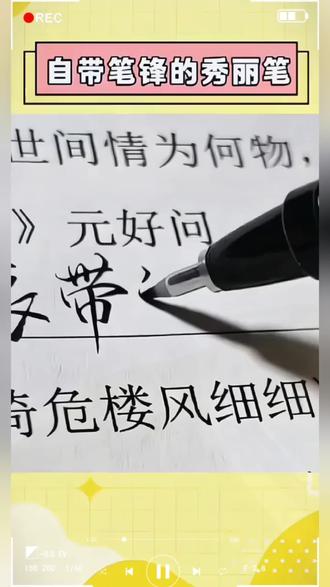 REC
自带笔锋的秀丽笔
世间情为何物，
》元好问
带
倚危楼风细细